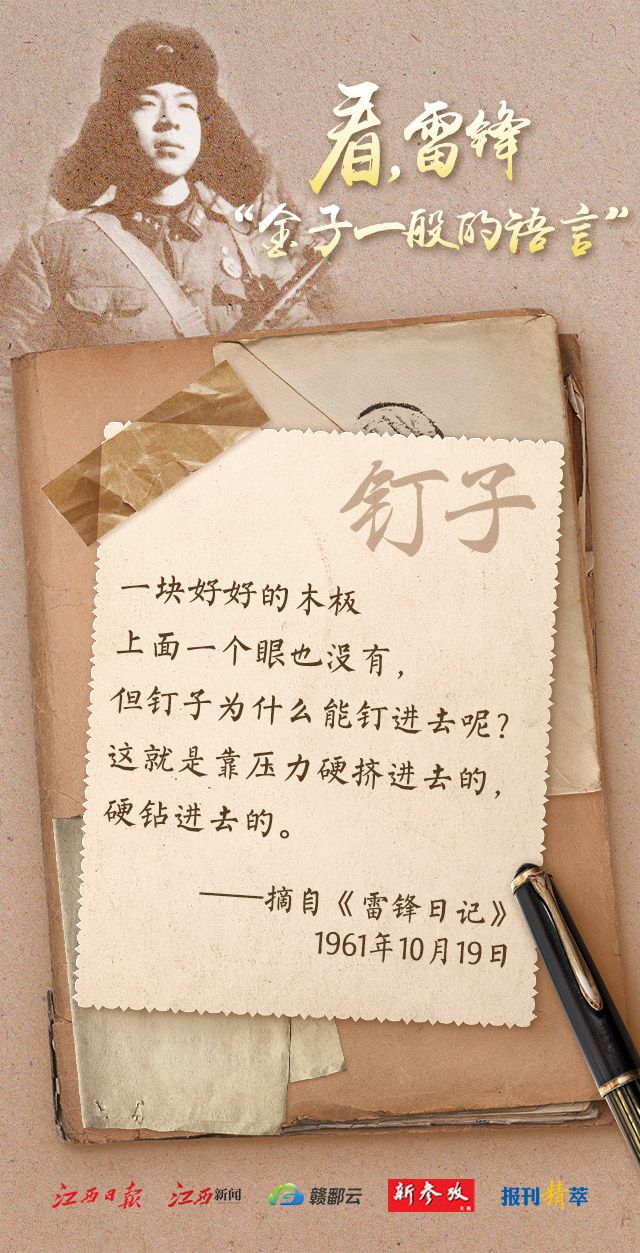 看,雷锋
“金子一般的语言”
钉子
一块好好的木板
上面一个眼也没有，
但钉子为什么能钉进去呢？
这就是靠压力硬挤进去的，
硬钻进去的。
——摘自《雷锋日记》
1961年10月19日
江西日报 江西新闻 赣鄱云 新参考 报刊精萃